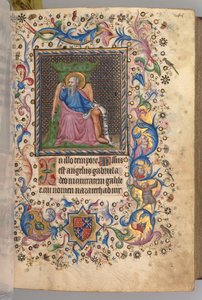 In illo tempore Missus
est angelus gabriel a
deo in civitatem galilee
cui nomen nazareth ad vir